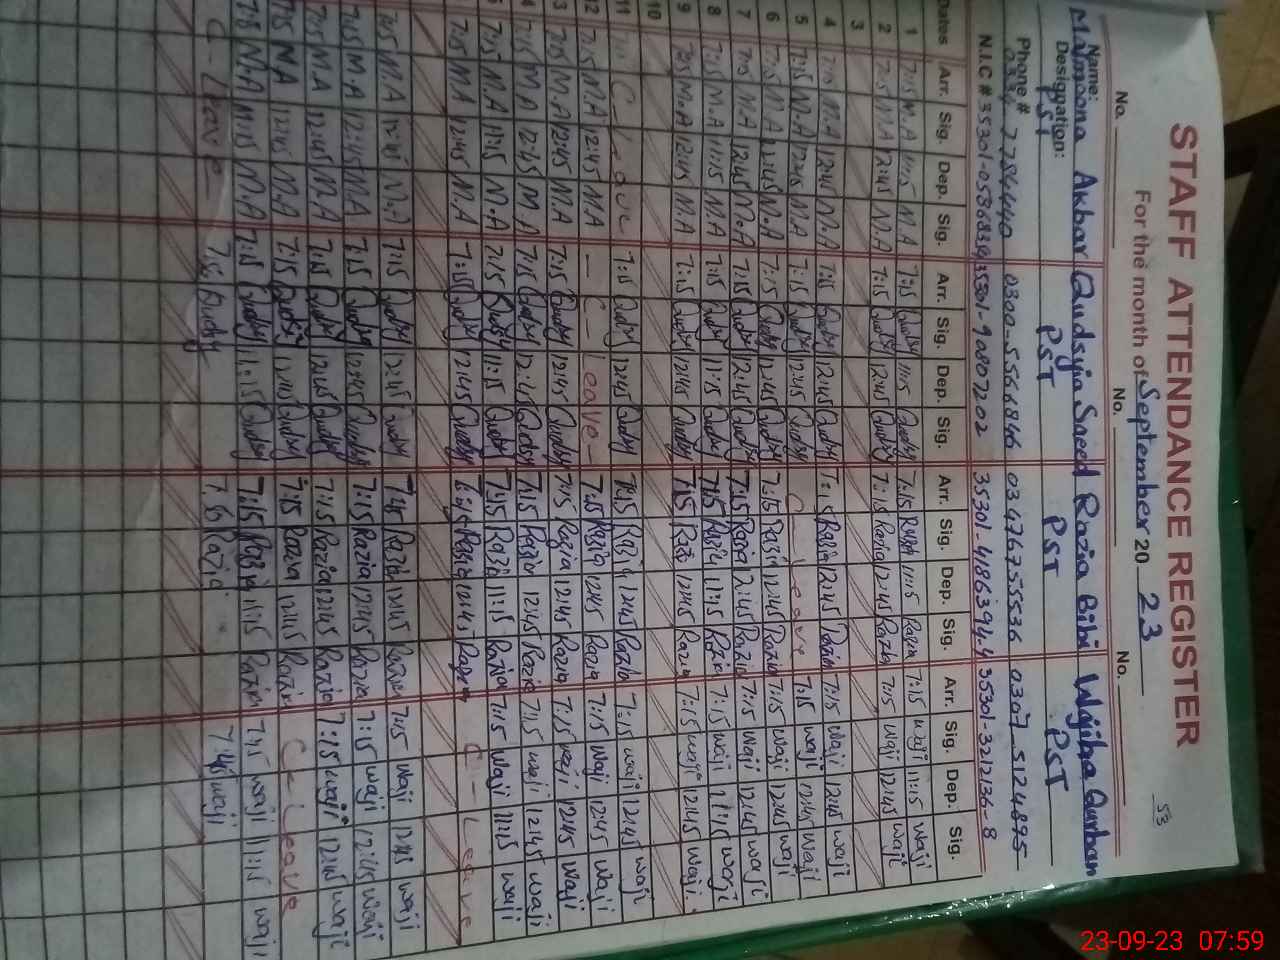 STAFF ATTENDANCE REGISTER
53
For the month of September 20 23
No. No. No.
Name: Maimoona Akbar Qudsyia Saeed Razia Bibi Wajiha Qurban
Designation: PST PST PST PST
Phone # 0300-5566846 03476755536 0307-5124895
N.I.C # 35301-90807202 35301-4186394-4 35301-3212136-8
Dates Arr. Sig. Dep. Sig. Arr. Sig. Dep. Sig. Arr. Sig. Dep. Sig. Arr. Sig. Dep. Sig.
1 7:15 M.A 11:15 M.A 7:15 Qudsy 11:15 Qudsy 7:15 Razia 11:15 Razia 7:15 waji 11:15 waji
2 7:15 M.A 12:45 M.A 7:15 Qudsy 12:45 Qudsy 7:15 Razia 12:45 Razia 7:15 waji 12:45 waji
3
4 7:15 M.A 12:45 M.A 7:15 Qudsy 12:45 Qudsy 7:15 Razia 12:45 Razia 7:15 waji 12:45 waji
5 7:15 M.A 12:45 M.A 7:15 Qudsy 12:45 Qudsy C - Leave 7:15 waji 12:45 waji
6 7:15 M.A 12:45 M.A 7:15 Qudsy 12:45 Qudsy 7:15 Razia 12:45 Razia 7:15 waji 12:45 waji
7 7:15 M.A 12:45 M.A 7:15 Qudsy 12:45 Qudsy 7:15 Razia 12:45 Razia 7:15 waji 12:45 waji
8 7:15 M.A 11:15 M.A 7:15 Qudsy 11:15 Qudsy 7:15 Razia 11:15 Razia 7:15 waji 11:15 waji
9 7:15 M.A 12:45 M.A 7:15 Qudsy 12:45 Qudsy 7:15 Razia 12:45 Razia 7:15 waji 12:45 waji
10
11 C - Leave 7:15 Qudsy 12:45 Qudsy 7:15 Razia 12:45 Razia 7:15 waji 12:45 waji
12 7:15 M.A 12:45 M.A - C - Leave - 7:15 Razia 12:45 Razia 7:15 waji 12:45 waji
13 7:15 M.A 12:45 M.A 7:15 Qudsy 12:45 Qudsy 7:15 Razia 12:45 Razia 7:15 waji 12:45 waji
7:15 M.A 12:45 M.A 7:15 Qudsy 12:45 Qudsy 7:15 Razia 12:45 Razia 7:15 waji 12:45 waji
7:15 M.A 11:15 M.A 7:15 Qudsy 11:15 Qudsy 7:15 Razia 11:15 Razia 7:15 waji 11:15 waji
7:15 M.A 12:45 M.A 7:15 Qudsy 12:45 Qudsy Razia 12:45 Razia C - Leave
7:15 M.A 12:45 M.A 7:15 Qudsy 12:45 Qudsy Razia 12:45 Razia waji 12:45 waji
7:15 M.A 12:45 M.A 7:15 Qudsy 12:45 Qudsy 7:15 Razia 12:45 Razia 7:15 waji 12:45 waji
7:15 M.A 12:45 M.A 7:15 Qudsy 12:45 Qudsy 7:15 Razia 12:45 Razia 7:15 waji 12:45 waji
7:15 M.A 12:45 M.A 7:15 Qudsy 12:45 Qudsy 7:15 Razia 12:45 Razia C - Leave
7:15 M.A 11:15 M.A 7:15 Qudsy 11:15 Qudsy 7:15 Razia 11:15 Razia 7:15 waji 11:15 waji
C - Leave - 7:15 Qudsy Razia waji
23-09-23 07:59